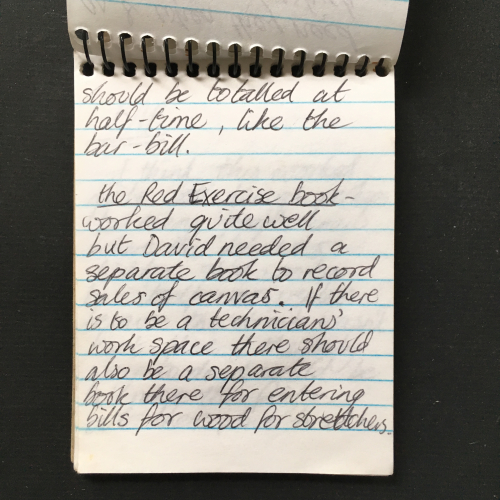 should be totalled at
half-time, like the
bar-bill.
the Red Exercise book-
worked quite well
but David needed a
separate book to record
sales of canvas. If there
is to be a technicians'
work space there should
also be a separate
book there for entering
bills for wood for stretchers.